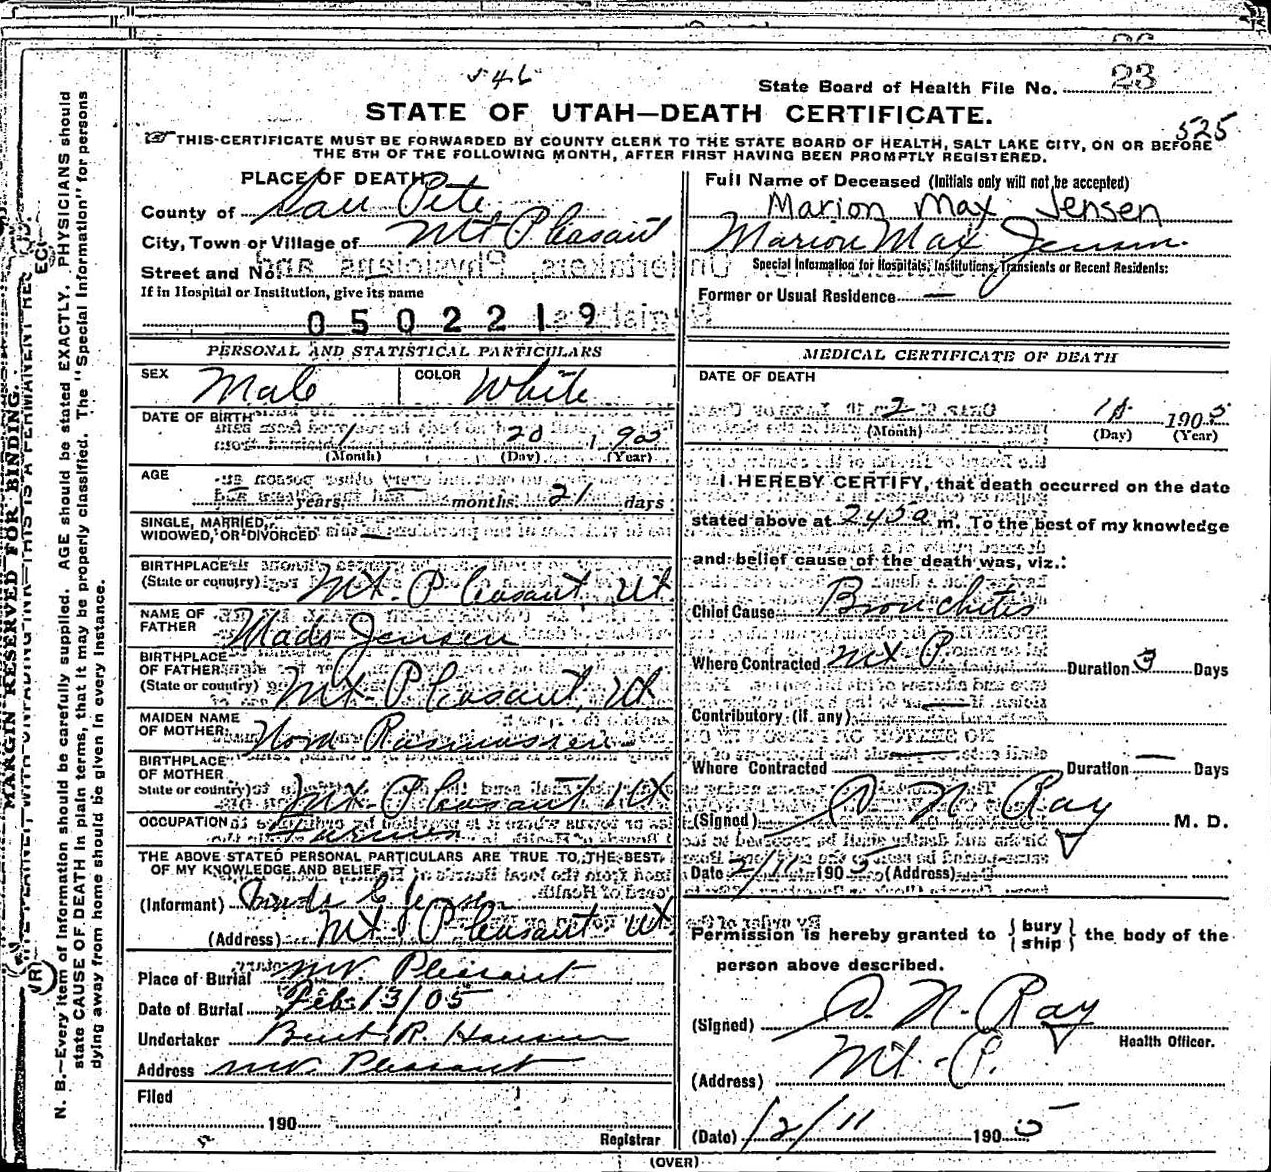 546
State Board of Health File No. 23
STATE OF UTAH—DEATH CERTIFICATE.
525
THIS CERTIFICATE MUST BE FORWARDED BY COUNTY CLERK TO THE STATE BOARD OF HEALTH, SALT LAKE CITY, ON OR BEFORE
THE 5TH OF THE FOLLOWING MONTH, AFTER FIRST HAVING BEEN PROMPTLY REGISTERED.
PLACE OF DEATH
County of San Pete
City, Town or Village of Mt Pleasant
Street and No.
If in Hospital or Institution, give its name
0502219
PERSONAL AND STATISTICAL PARTICULARS
SEX Male COLOR White
DATE OF BIRTH
1 20 190
(Month) (Day) (Year)
AGE
years, months. 21 days
SINGLE, MARRIED,
WIDOWED, OR DIVORCED —
BIRTHPLACE
(State or country) Mt. Pleasant, Ut.
NAME OF
FATHER Mads Jensen
BIRTHPLACE
OF FATHER
(State or country) Mt. Pleasant, Ut
MAIDEN NAME
OF MOTHER Nora Rasmussen
BIRTHPLACE
OF MOTHER
State or country) Mt. Pleasant, Ut
OCCUPATION Farmer
THE ABOVE STATED PERSONAL PARTICULARS ARE TRUE TO THE BEST
OF MY KNOWLEDGE AND BELIEF
(Informant) Jensen
(Address) Mt. Pleasant Ut
Place of Burial Mt. Pleasant
Date of Burial Feb. 13/05
Undertaker Burt R. Hansen
Address Mt. Pleasant
Filed
190
Registrar
Full Name of Deceased (Initials only will not be accepted)
Marion Max Jensen
Marion Max Jensen
Special Information for Hospitals, Institutions, Transients or Recent Residents:
Former or Usual Residence —
MEDICAL CERTIFICATE OF DEATH
DATE OF DEATH
2 1905
(Month) (Day) (Year)
I HEREBY CERTIFY, that death occurred on the date
stated above at 245 a m. To the best of my knowledge
and belief cause of the death was, viz.:
Chief Cause Bronchitis
Where Contracted Mt P Duration 3 Days
Contributory (if any) —
Where Contracted — Duration — Days
(Signed) N. Ray M. D.
Date 2/11 1905 (Address)
Permission is hereby granted to { bury ship } the body of the
person above described.
(Signed) N. Ray
Health Officer.
(Address) Mt. P.
(Date) 2/11 1905
(OVER)
MARGIN RESERVED FOR BINDING.
N. B.—Every item of information should be carefully supplied. AGE should be stated EXACTLY. PHYSICIANS should
state CAUSE OF DEATH in plain terms, that it may be properly classified. The "Special Information" for persons
dying away from home should be given in every instance.